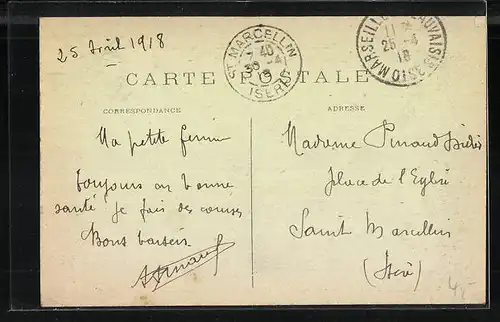 25 Avril 1918
ST MARCELLIN
*40
30 -4
18
ISERE
MARSEILLE BEAUVAISIS OISE
11 *
25 -4
18
CARTE POSTALE
CORRESPONDANCE
ADRESSE
Ma petite femme
Toujours en bonne
santé je fais des courses
Bons baisers
Madame Pinaud
place de l'Eglise
Saint Marcellin
(Isère)